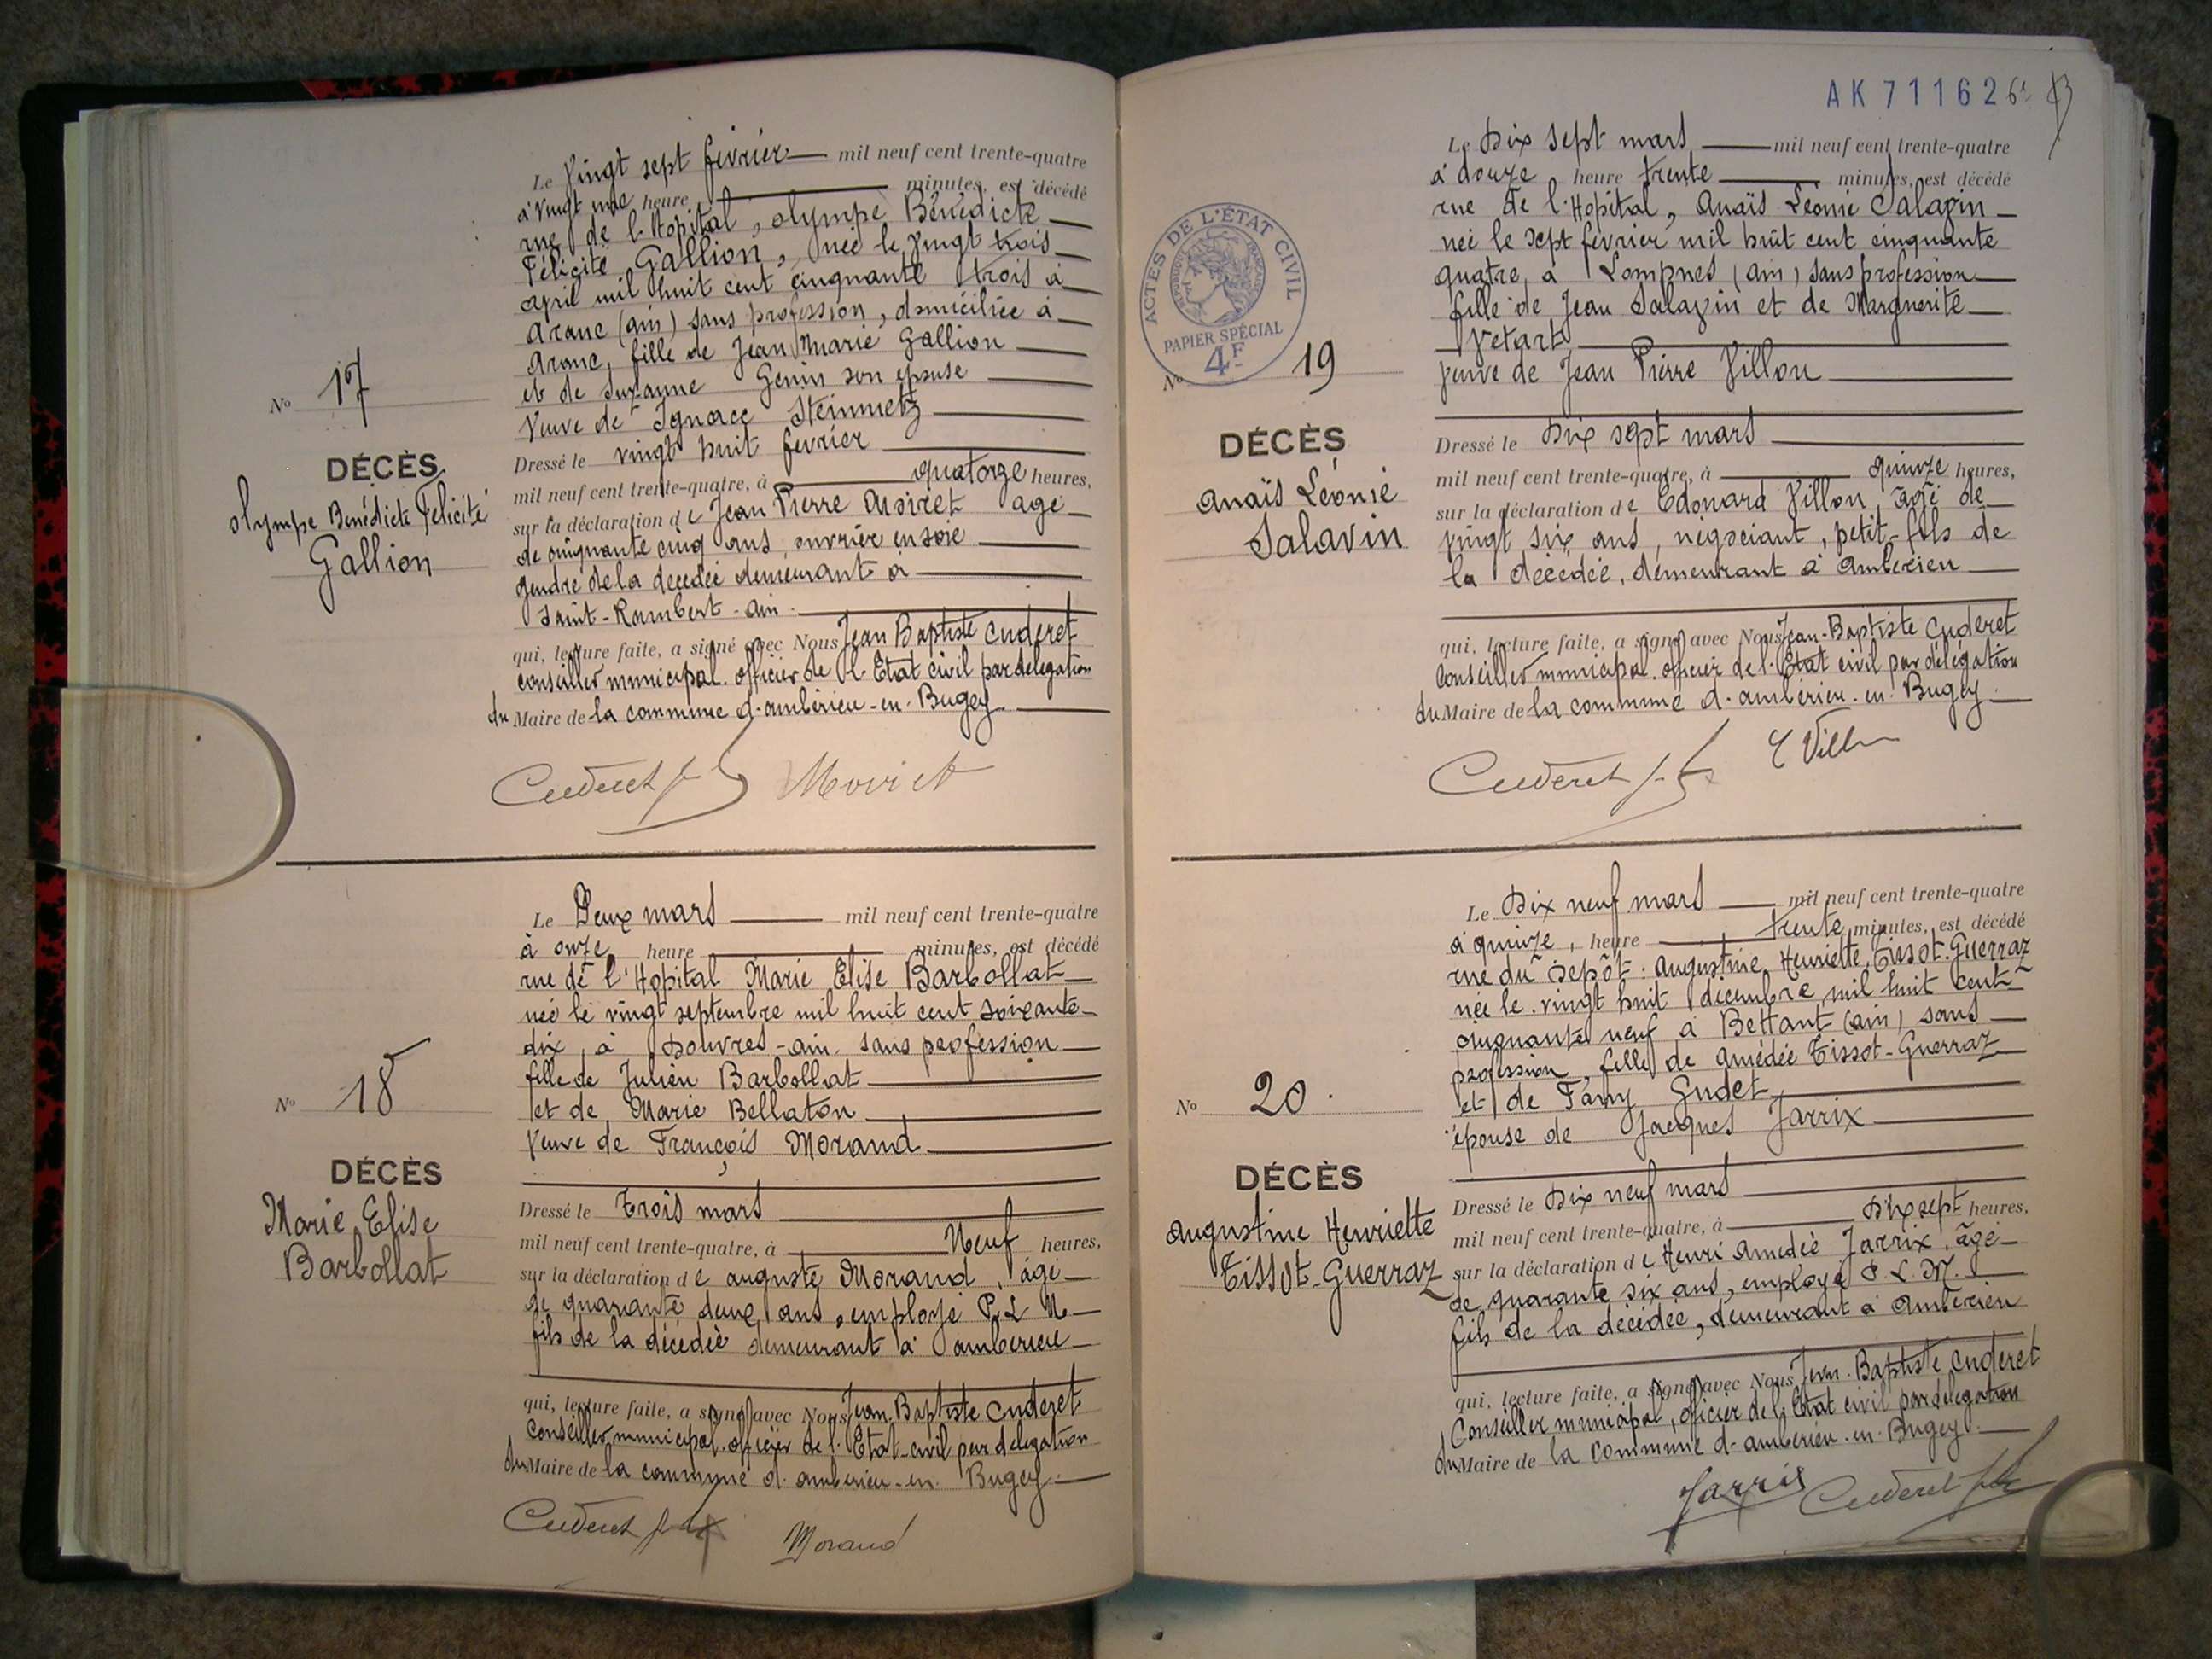 Le Vingt sept fevrier mil neuf cent trente-quatre
à vingt une heure minutes, est décédé
rue de l'Hopital, Olympe Bénédicte
Félicité Gallion, née le vingt trois
april mil huit cent cinquante trois à
Aranc (ain) sans profession, domiciliée à
Aranc, fille de Jean Marie Gallion
et de Suzanne Genin son epouse
Veuve de Ignace Steinmetz
No 17
DÉCÈS
Olympe Bénédicte Félicité
Gallion
Dressé le vingt huit fevrier
mil neuf cent trente-quatre, à quatorze heures,
sur la déclaration de Jean Pierre Moiret agé
de cinquante cinq ans, ouvrier en soie
gendre de la decedée demeurant à
Saint-Rambert-ain.
qui, lecture faite, a signé avec Nous Jean Baptiste Cuderet
conseiller municipal. officier de l'Etat civil par delegation
du Maire de la commune d'ambérieu-en-Bugey
Cuderet Moiret
Le Deux mars mil neuf cent trente-quatre
à onze heure minutes, est décédé
rue de l'Hopital Marie Elise Barbollat
née le vingt septembre mil huit cent soixante
dix, à Douvres-ain. sans profession
fille de Julien Barbollat
et de Marie Bellaton
Veuve de François Morand
No 18
DÉCÈS
Marie Elise
Barbollat
Dressé le Trois mars
mil neuf cent trente-quatre, à Neuf heures,
sur la déclaration de auguste Morand, âgé
de quarante deux ans, employé P. L M
fils de la décédée demeurant à amberieu
qui, lecture faite, a signé avec Nous Jean-Baptiste Cuderet
Conseiller municipal. officier de l'Etat-civil par delegation
du Maire de la commune d'amberieu-en-Bugey.
Cuderet Morand
AK 711626
Le Dix sept mars mil neuf cent trente-quatre
à douze heure trente minutes, est décédé
rue de l'Hopital, Anaïs Léonie Salavin
née le sept fevrier mil huit cent cinquante
quatre, à Lompnes (ain) sans profession
fille de Jean Salavin et de Marguerite
Vetard
veuve de Jean Pierre Villon
ACTES DE L'ÉTAT CIVIL
PAPIER SPÉCIAL
4F
No 19
DÉCÈS
Anaïs Léonie
Salavin
Dressé le Dix sept mars
mil neuf cent trente-quatre, à quinze heures,
sur la déclaration de Edouard Villon, agé de
vingt six ans, négociant, petit-fils de
la décédée, demeurant à Ambérieu
qui, lecture faite, a signé avec Nous Jean-Baptiste Cuderet
Conseiller municipal. officier de l'Etat civil par délégation
du Maire de la commune d'ambérieu-en-Bugey.
Cuderet E Villon
Le Dix neuf mars mil neuf cent trente-quatre
à quinze, heure trente minutes, est décédé
rue du Dépôt. Augustine Henriette Tissot-Guerraz
née le vingt huit décembre mil huit cent
cinquante neuf à Bettant (ain) sans
profession, fille de Amédée Tissot-Guerraz
et de Fany Gudet
épouse de Jacques Jarrix
No 20.
DÉCÈS
Augustine Henriette
Tissot-Guerraz
Dressé le Dix neuf mars
mil neuf cent trente-quatre, à Dix sept heures,
sur la déclaration de Henri Amédée Jarrix, âgé
de quarante six ans, employé P. L. M.
fils de la décédée, demeurant à Ambérieu
qui, lecture faite, a signé avec Nous Jean-Baptiste Cuderet
Conseiller municipal, officier de l'Etat civil par delegation
du Maire de la Commune d'amberieu-en-Bugey.
Jarrix Cuderet